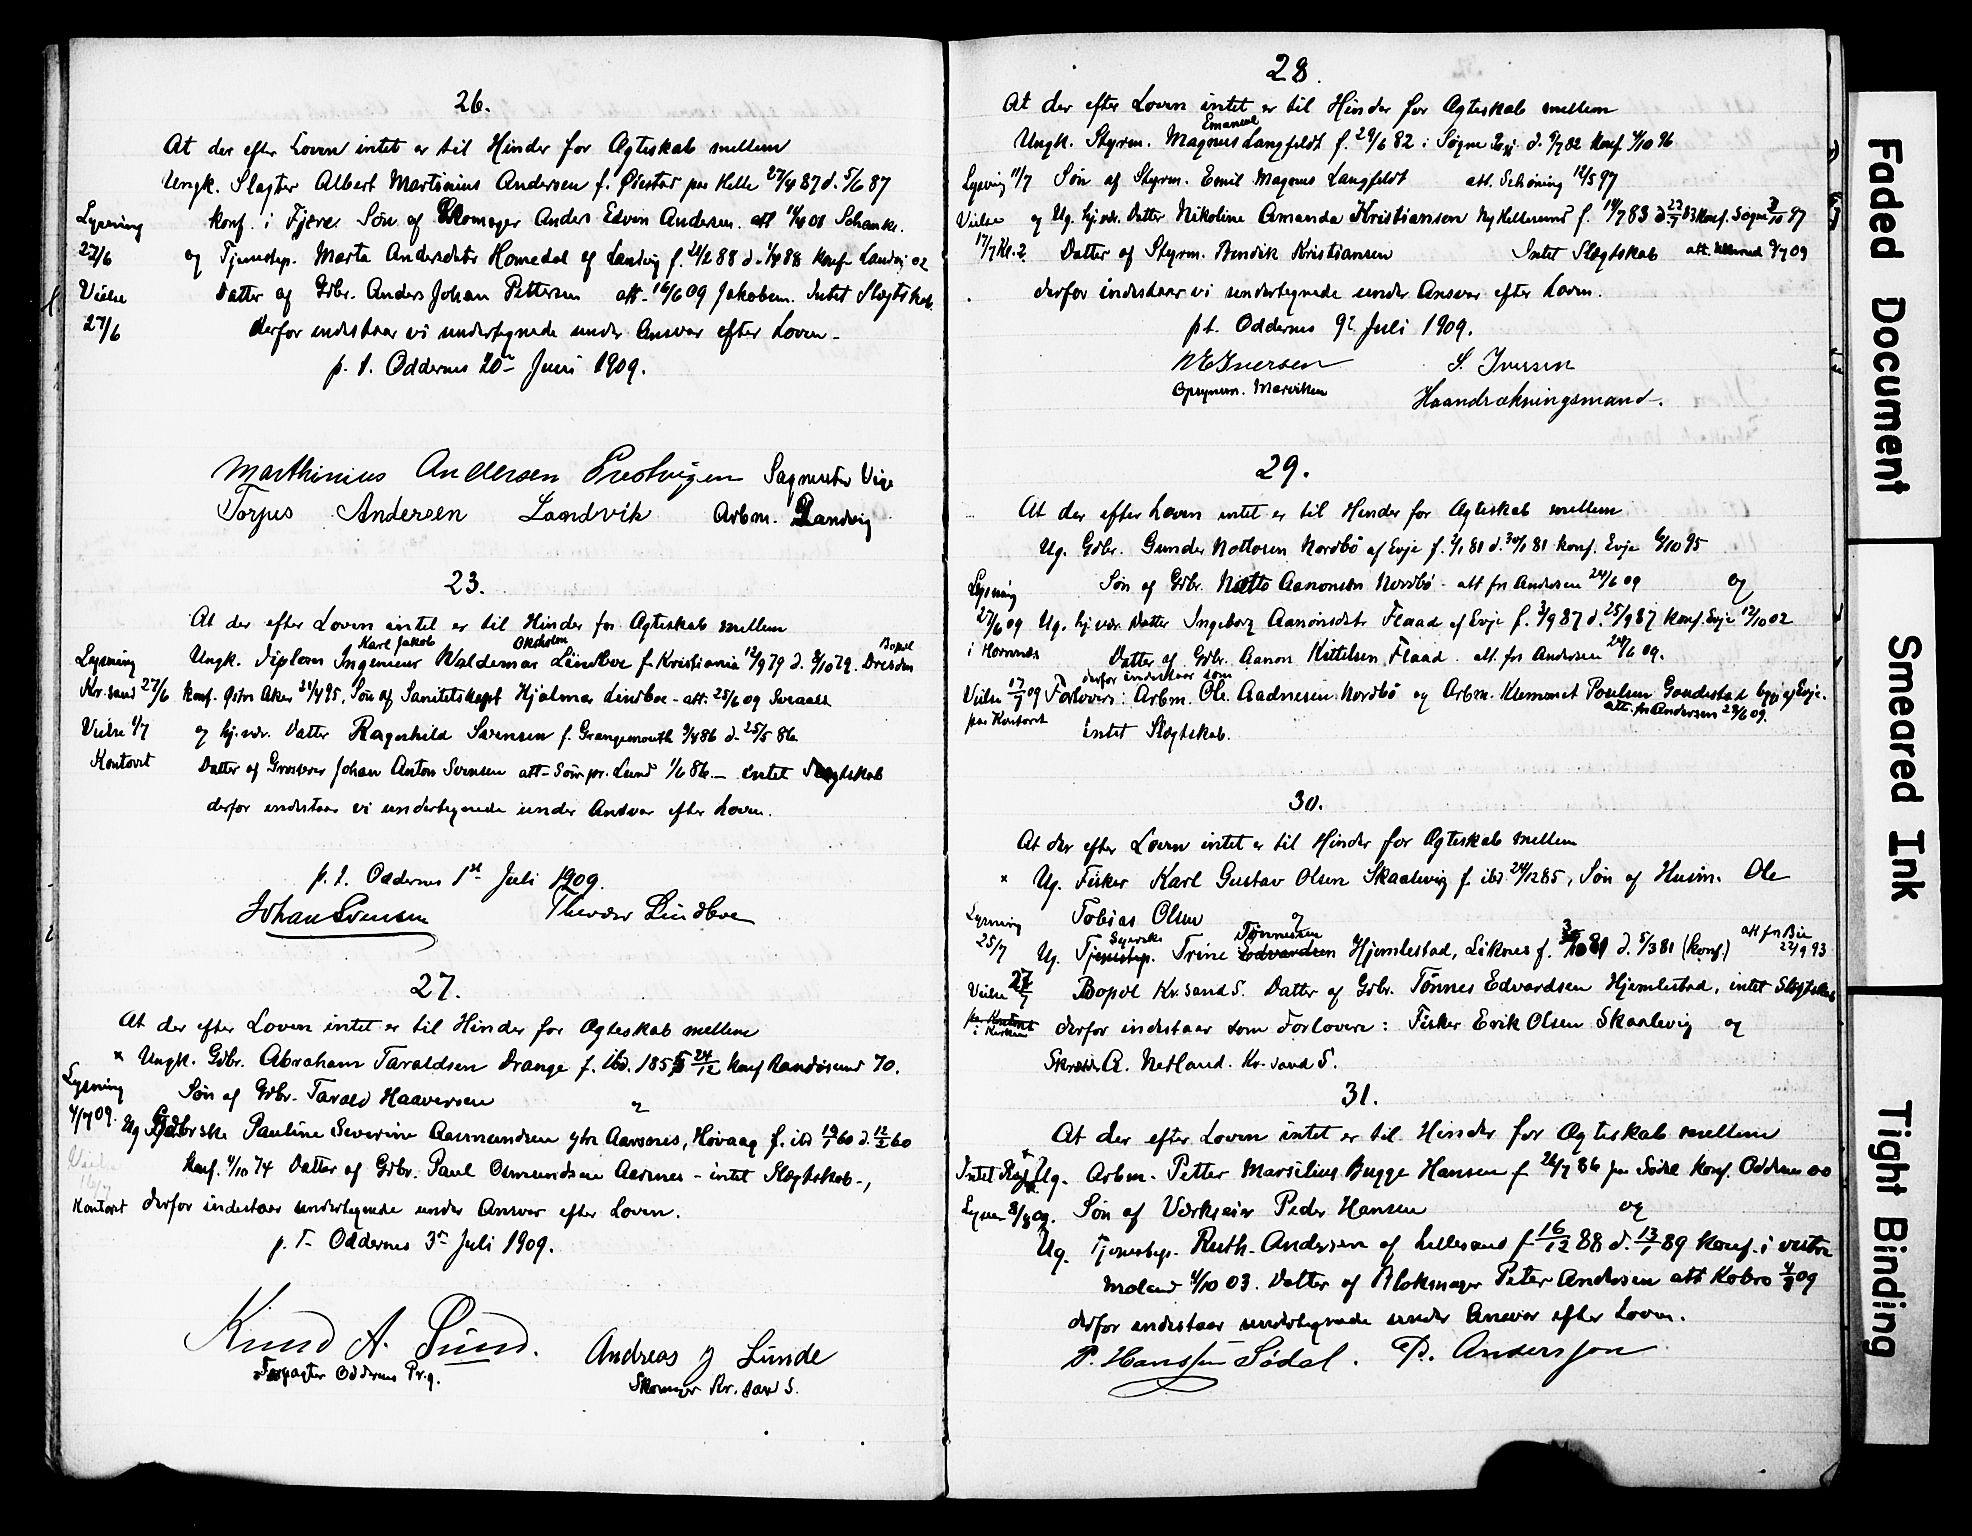 26.
At der efter Loven intet er til Hinder for Ægteskab mellem
Ungk. Slagter Albert Martinius Andersen f. Øiestad pas Helle 27/4 87 d. 5/6 87
Lysning
konf. i Fjære Søn af Skomager Anders Edvin Andersen. att 01 Schanke.
27/6
og Tjenestep. Marta Andersdatr Homedal af Landvig f. 21/2 88 d. 1/4 88 konf Landvig 02
Vielse
Datter af Gdbr. Anders Johan Pettersen att. 16/6 09 Jakobsen. Intet Slægtskab
27/6
derfor indestaar vi undertegnede under Ansvar efter Loven.
p. t. Oddernes 20de Juni 1909.
Marthinius Andersen Prestvigen Sagmester Vige
Torjus Andersen Landvik Arbm. Landvig
23.
At der efter Loven intet er til Hinder for Ægteskab mellem
Karl Jakob
Bopæl
Lysning
Ungk. diplom Ingeniør Waldemar Lindboe f. Kristiania 12/9 79 d. 9/10 79. Dresden
Kr.sand 27/6
konf. Østre Aker 21/4 95. Søn af Sanitetskapt Hjalmar Lindboe - att. 25/6 09
Vielse 1/7
og hj.vær. Datter Ragnhild Svensen f. Grangemouth 9/4 86 d. 25/5 86
Kontoret
Datter af Grosserer Johan Anton Svensen att. Lund 1/6 86 - intet Slægtskab
derfor indestaar vi undertegnede under Andsvar efter Loven.
p. t. Oddernes 1st Juli 1909.
Johan Svensen Theodor Lindboe
27.
At der efter Loven intet er til Hinder for Ægteskab mellem
x Ungk. Gdbr. Abraham Taraldsen Drange f. ibd. 1855 24/12 konf Randøsund 70.
Lysning
Søn af Gdbr. Tarald Haaversen og
4/7 09.
Ug Pauline Severine Aasmundsen ytre Aarsnes, Høvaag f. ibd 19/1 60 d. 12/2 60
Vielse
konf. 4/10 74 Datter af Gdbr. Paul Osmundsen Aarsnes - intet Slægtskab -,
Kontoret
derfor indestaar undertegnede under Ansvar efter Loven.
p. T. Oddernes 3de Juli 1909.
Knud A. Lund.
Forpagter Oddernes Pr.g.
Andreas J Lunde
Skomager Kr.sand S.
28.
At der efter Loven intet er til Hinder for Ægteskab mellem
Emanuel
Ungk. Styrm. Magnus Langfeldt f. 29/6 82 i Søgne d. 9/7 82 konf. 4/10 96
Lysning 11/7
Søn af Styrm. Emil Magnus Langfeldt att. Schøning 12/5 97
Vielse
og Ug. hj.vær. Datter Nikoline Amanda Kristiansen Ny Hellesund f. 14/7 83 d 22/7 83 konf. Søgne 3/10 97
17/7 Kl. 2
Datter af Styrm. Bendik Kristiansen Intet Slægtskab att. 9/7 09
derfor indestaar vi undertegnede under Ansvar efter Loven.
pt. Oddernes 9de Juli 1909.
N E Iversen S. Iversen
Opsynsm. Marviken Haandrækningsmand.
29.
At der efter Loven intet er til Hinder for Ægteskab mellem
Ug. Gdbr. Gunder Nottosen Nordbö af Evje f. 2/1 81 d. 30/1 81 konf. Evje 6/10 95
Lysning
Søn af Gdbr. Notto Aanonsen Nordbö - att fr Andersen 24/6 09 og
27/6 09
Ug. hj.vær. Datter Ingeborg Aanonsdatr Flaad af Evje f. 3/9 87 d. 25/9 87 konf. Evje 12/10 02
i Hornnes
Datter af Gdbr. Aanon Kittelsen Flaad. att. fr Andersen 24/6 09.
derfor indestaar som
Vielse 17/7 09
Forlovere: Arbm. Ole Aadnesen Nordbö og Arbm. Klemmet Poulsen Gaudestad bygj af Evje.
paa Kontoret
att. fr Andersen 29/6 09.
intet Slægtskab.
30.
At der efter Loven intet er til Hinder for Ægteskab mellem
x Ug. Fisker Karl Gustav Olsen Skaalevig f. ibd. 24/12 85, Søn af Husm. Ole
Lysning
Tobias Olsen og
25/7
Syerske Tönnessen att fr Bie
Ug. Tjenestep. Trine Edvardsen Hjemlestad, Liknes f. d. 5/3 81 (konf.) 22/9 93
Vielse
Bopæl Kr.sand S. Datter af Gdbr. Tönnes Edvardsen Hjemlestad, intet Slægtskab
paa Kontoret
i Kirken
derfor indestaar som Forlovere: Fisker Erik Olsen Skaalevig og
Skræder A. Netland. Kr.sand S.
31.
At der efter Loven intet er til Hinder for Ægteskab mellem
Intet Slægtsk.
Ug. Arbm. Petter Marsilius Bugge Hansen f 26/7 86 paa Sødal konf. Oddernes 00
Lysning 8/8 09.
Søn af Værkseier Peder Hansen og
Ug. Tjenestep. Ruth Andersen af Lillesand f 16/12 88 d. 13/1 89 konf. i vestre
Moland 4/10 03. Datter af Blokmager Peter Andersen att Kobro 4/8 09
derfor indestaar undertegnede under Ansvar efter Loven.
P. Hanssen Sødal. P. Andersson
Faded Document
Smeared Ink
Tight Binding